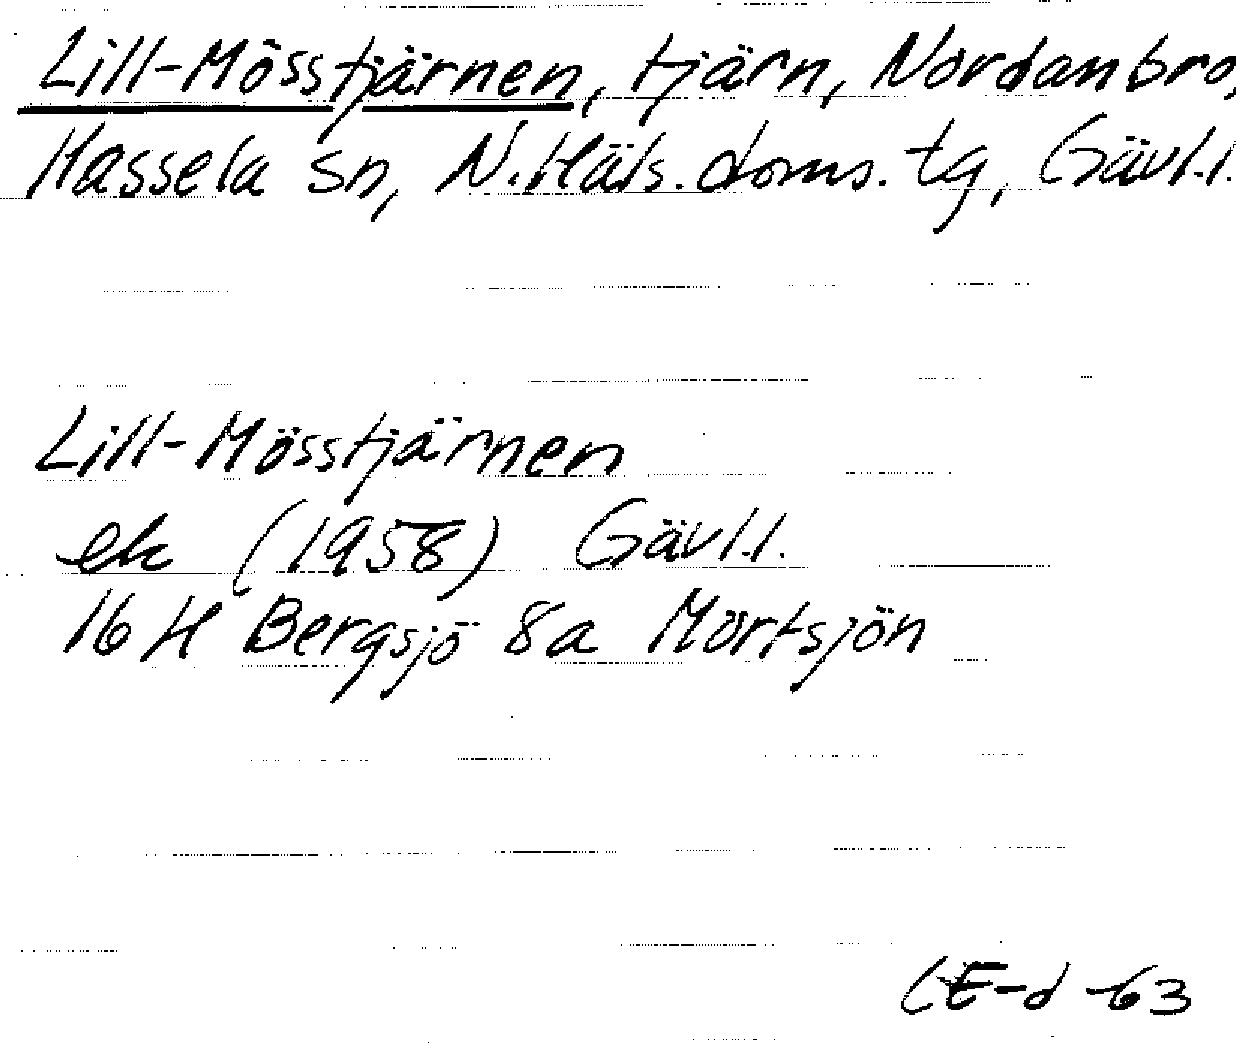 Lill-Mösstjärnen, tjärn, Nordanbro,
Hassela sn, N. Häls. doms. tg, Gävl.l.
Lill-Mösstjärnen
ek (1958) Gävl.l.
16 H Bergsjö 8a Mörtsjön
CE-d -63